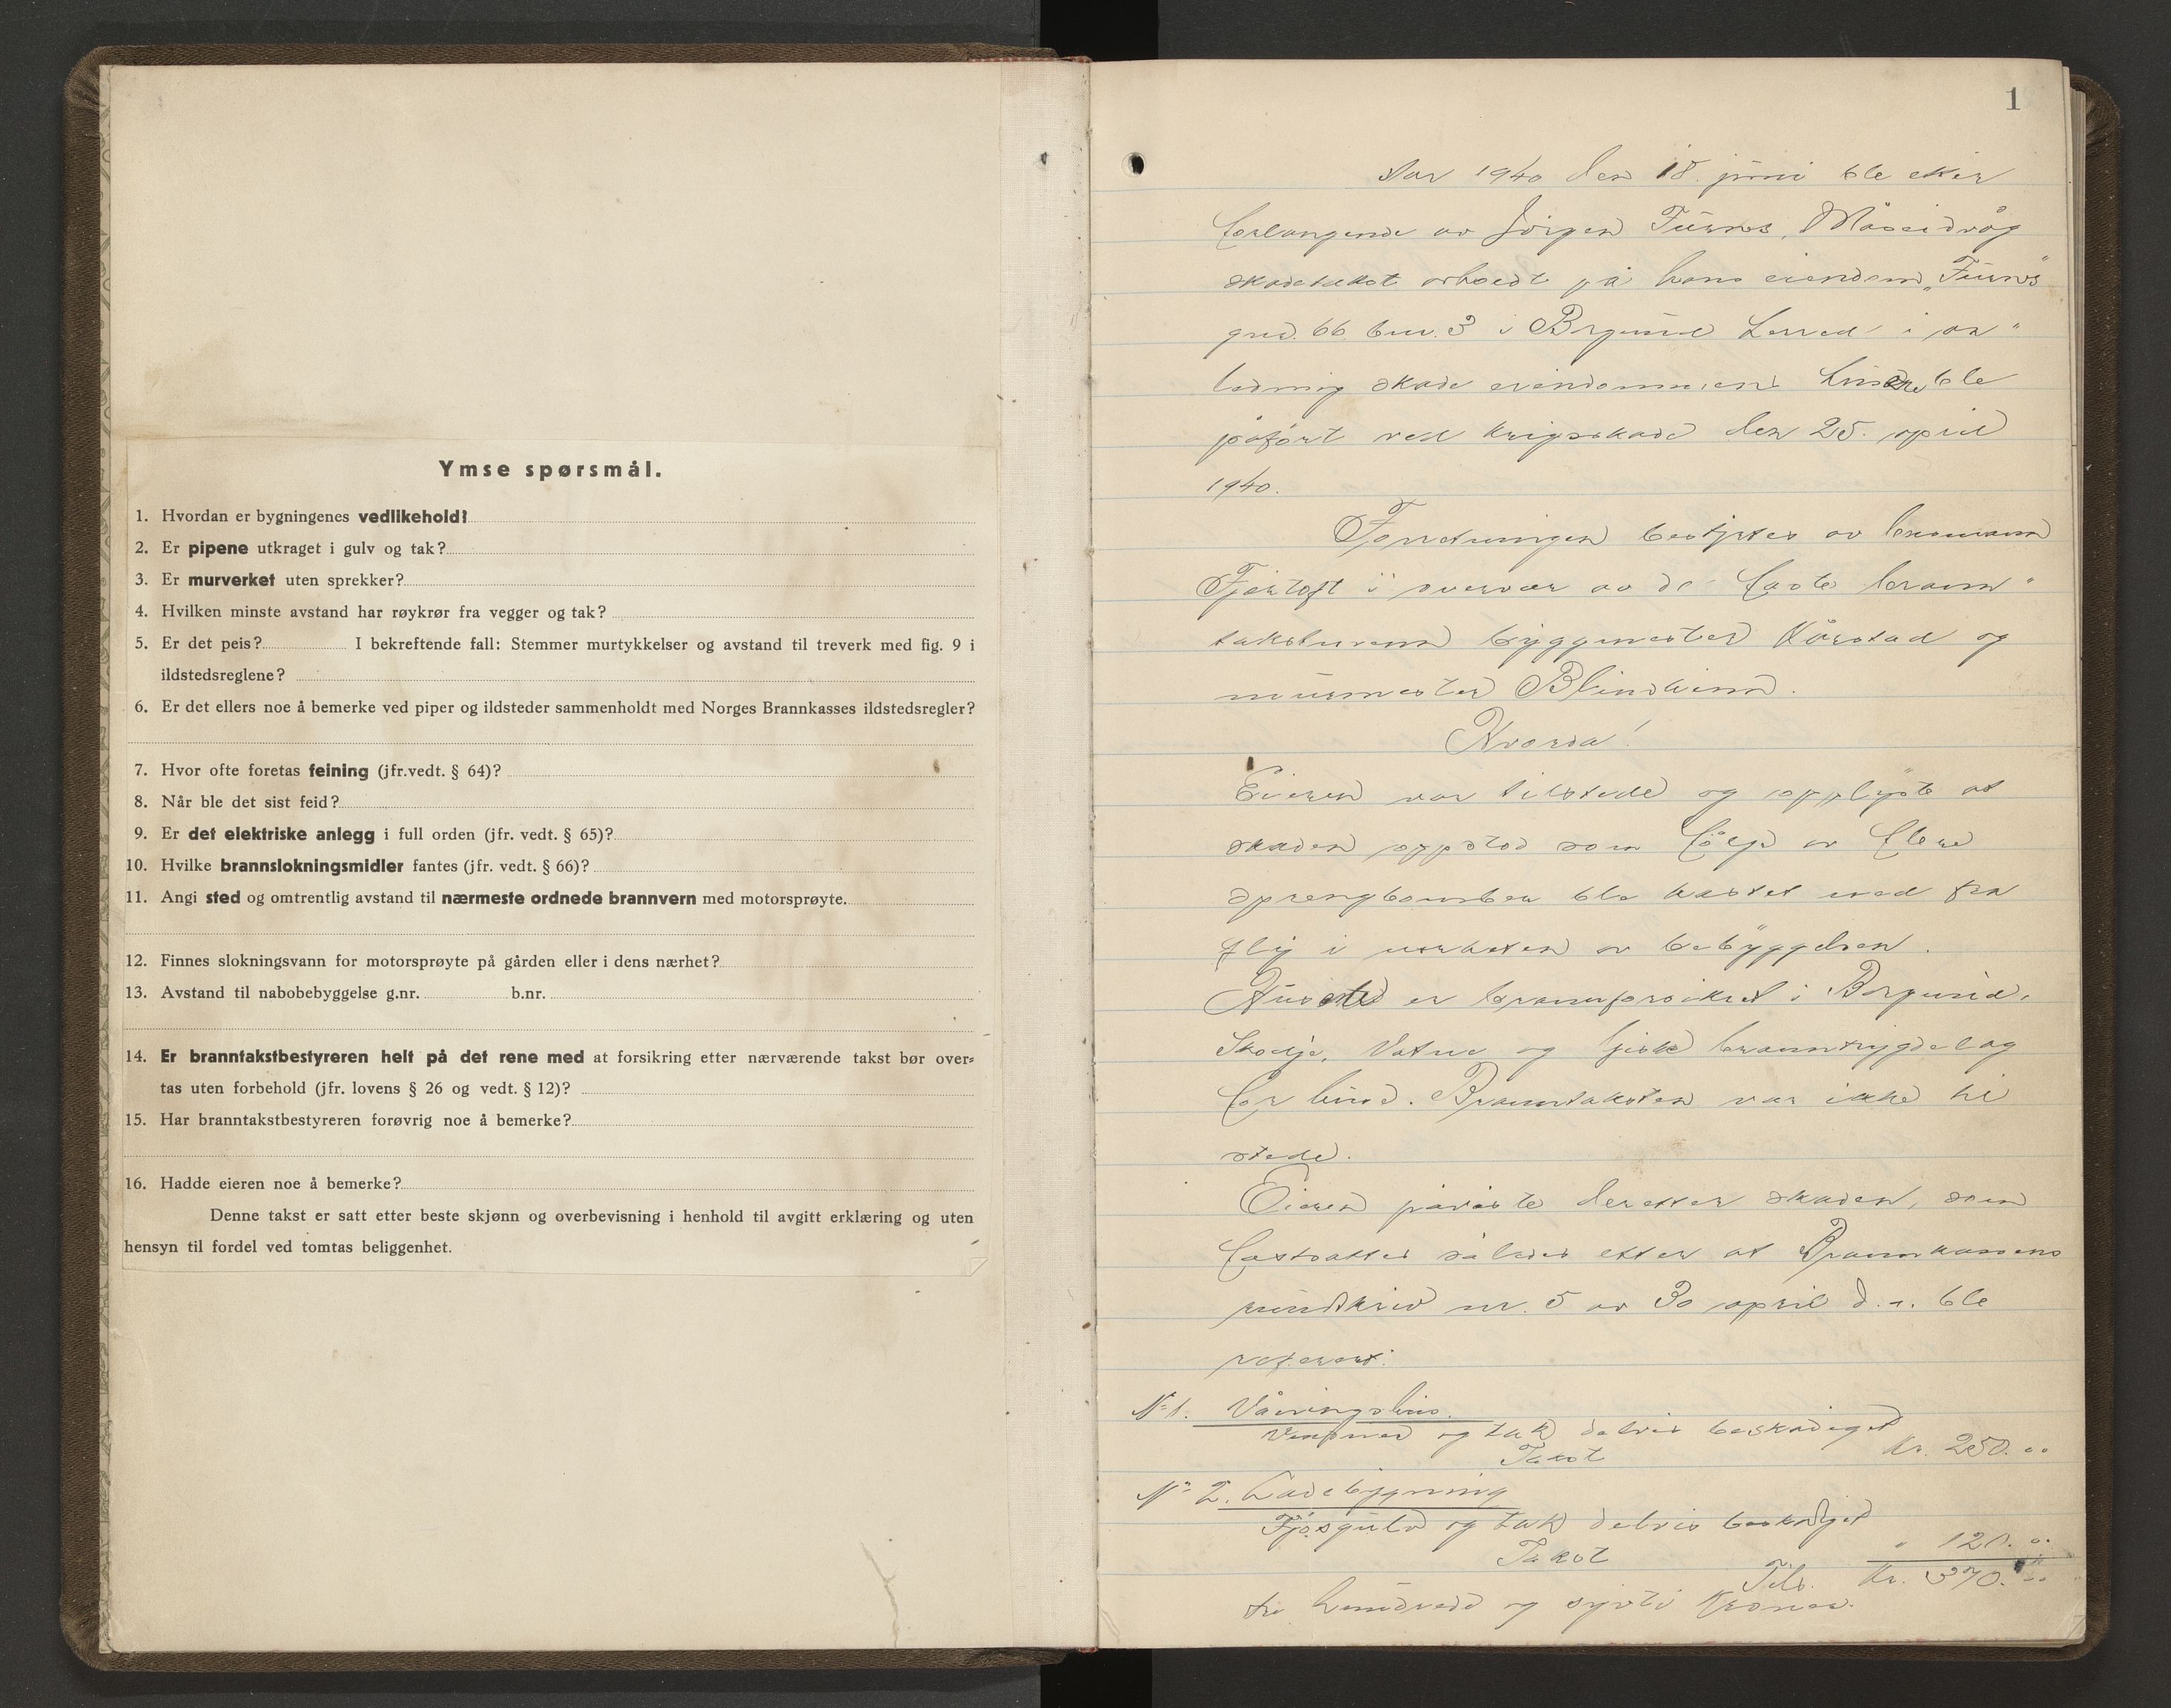 Ymse spørsmål.
1. Hvordan er bygningenes vedlikehold?
2. Er pipene utkraget i gulv og tak?
3. Er murverket uten sprekker?
4. Hvilken minste avstand har røykrør fra vegger og tak?
5. Er det peis? I bekreftende fall: Stemmer murtykkelser og avstand til treverk med fig. 9 i
ildstedsreglene?
6. Er det ellers noe å bemerke ved piper og ildsteder sammenholdt med Norges Brannkasses ildstedsregler?
7. Hvor ofte foretas feining (jfr.vedt. § 64)?
8. Når ble det sist feid?
9. Er det elektriske anlegg i full orden (jfr. vedt. § 65)?
10. Hvilke brannslokningsmidler fantes (jfr. vedt. § 66)?
11. Angi sted og omtrentlig avstand til nærmeste ordnede brannvern med motorsprøyte.
12. Finnes slokningsvann for motorsprøyte på gården eller i dens nærhet?
13. Avstand til nabobebyggelse g.nr. b.nr.
14. Er branntakstbestyreren helt på det rene med at forsikring etter nærværende takst bør over-
tas uten forbehold (jfr. lovens § 26 og vedt. § 12)?
15. Har branntakstbestyreren forøvrig noe å bemerke?
16. Hadde eieren noe å bemerke?
Denne takst er satt etter beste skjønn og overbevisning i henhold til avgitt erklæring og uten
hensyn til fordel ved tomtas beliggenhet.
1
Aar 1940 den 18. juni ble etter
forlangende av Jörgen Furnes, Måseidvåg
skadetakst avholdt på hans eiendom „Furnes"
gnr. 66 bnr. 3 i Borgund herred i an"
ledning skade eiendommens husene ble
påført ved krigsskade den 25. april
1940.
Forretningen bestyrtes av lensmann
Fjörtoft i overvær av de faste brann"
takstmenn byggmester Kårstad og
murmester Blindheim.
Hvorda!
Eieren var tilstede og opplyste at
skaden oppstod som fölge av flere
sprengbomber ble kastet ned fra
fly i nærheten av bebyggelsen.
Husene er brannforsikret i Borgund,
Skodje, Vatne og Giske branntrygdelag
for hus. Branntaksten var ikke til
stede.
Eieren påviste deretter skaden, som
fastsattes således etter at Brannkassens
rundskriv nr. 5 av 30 april d. a. ble
referert:
No 1. Våningshus.
Vinduer og tak delvis beskadiget
Takst Kr. 250.00
No 2. Ladebygning
Fjösgulv og tak delvis beskadiget
Takst " 120.00
Tils. Kr. 370.00
tre hundrede og sytti Kroner.